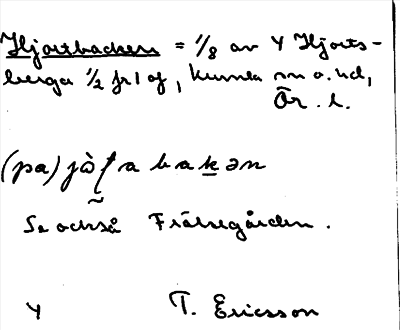 Hjortbacken = 1/8 av Y Hjorts-
berga 1/2 frl of, Kumla sn o. hd,
Ör. l.
(pa) jò̰ʃta bakən
Se också Frälsegården.
Y T. Ericsson